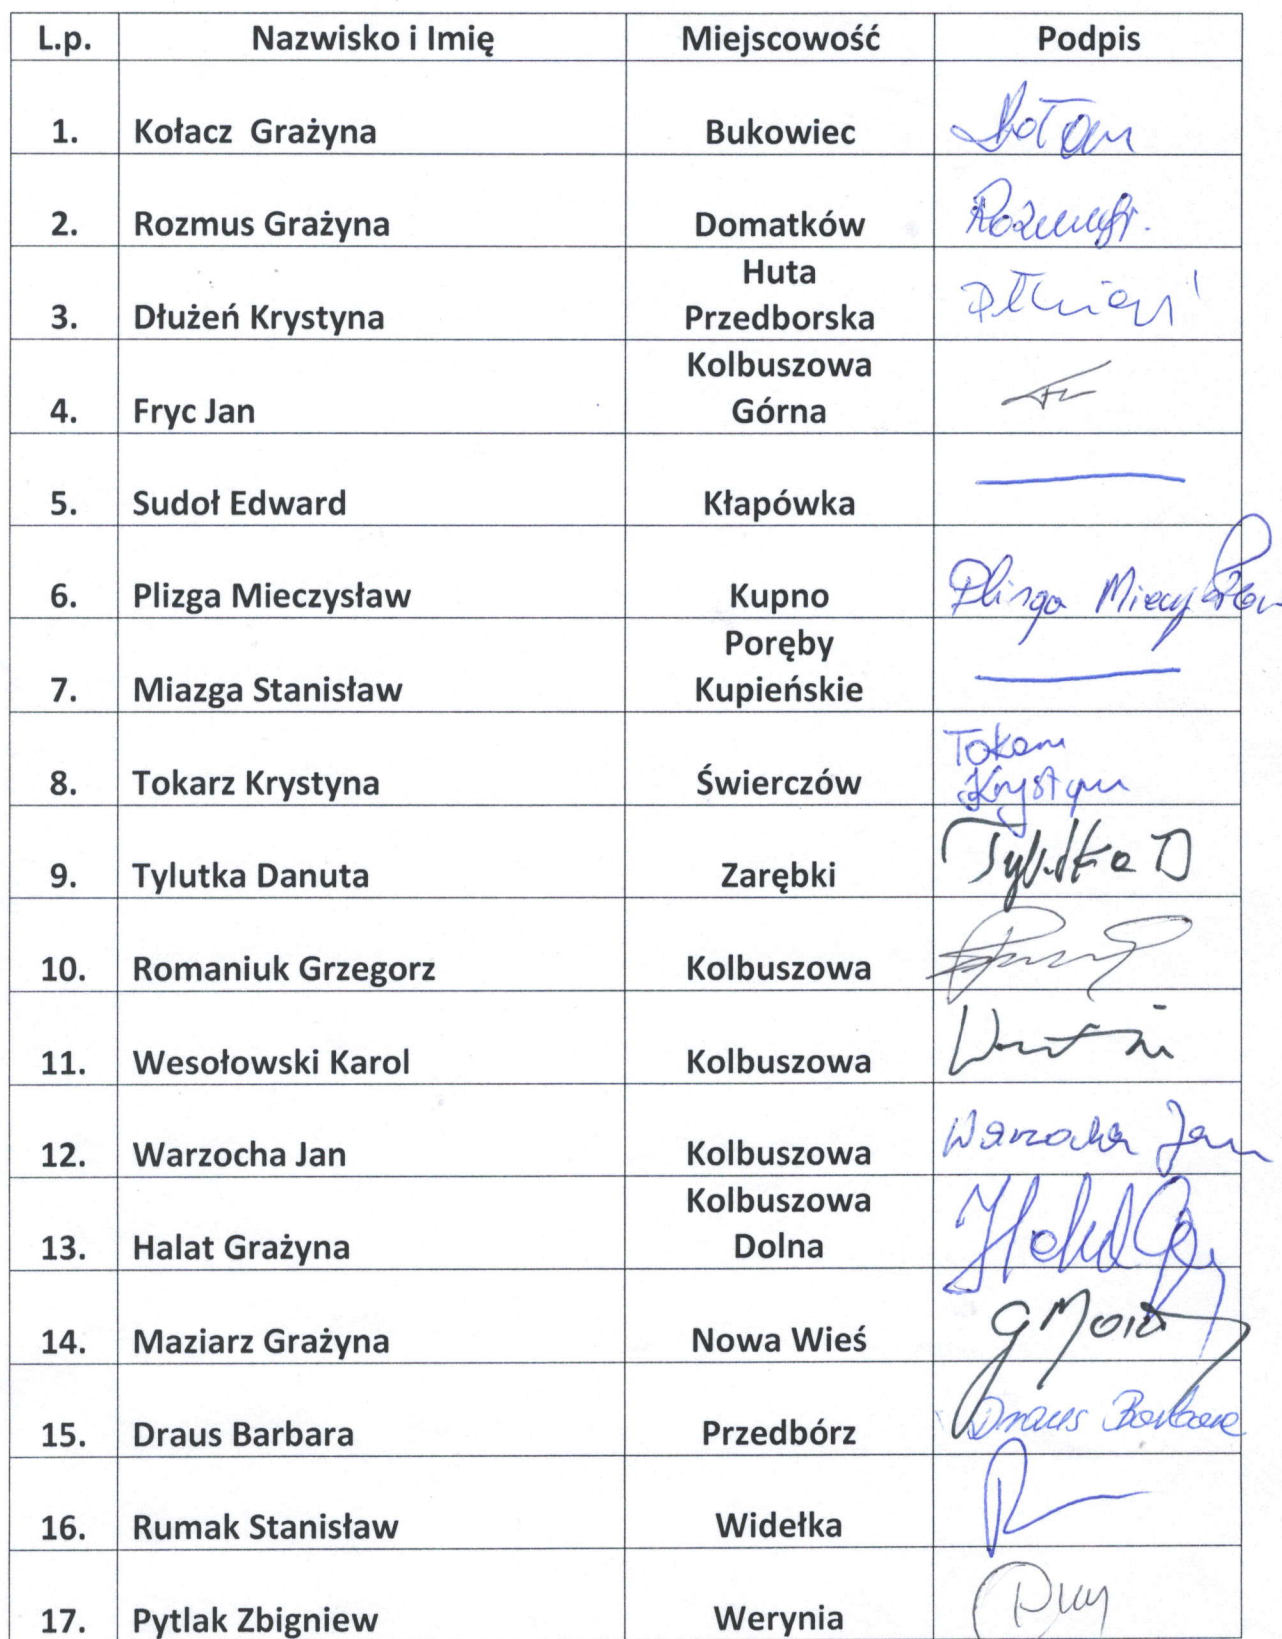 L.p. Nazwisko i Imię Miejscowość Podpis
1. Kołacz Grażyna Bukowiec
2. Rozmus Grażyna Domatków
Huta
3. Dłużeń Krystyna Przedborska
Kolbuszowa
4. Fryc Jan Górna
5. Sudoł Edward Kłapówka
6. Plizga Mieczysław Kupno Plizga Mieczysław
Poręby
7. Miazga Stanisław Kupieńskie
Tokarz
8. Tokarz Krystyna Świerczów Krystyna
9. Tylutka Danuta Zarębki Tylutka D
10. Romaniuk Grzegorz Kolbuszowa
11. Wesołowski Karol Kolbuszowa
12. Warzocha Jan Kolbuszowa Warzocha Jan
Kolbuszowa
13. Halat Grażyna Dolna
14. Maziarz Grażyna Nowa Wieś
15. Draus Barbara Przedbórz Draus Barbara
16. Rumak Stanisław Widełka
17. Pytlak Zbigniew Werynia